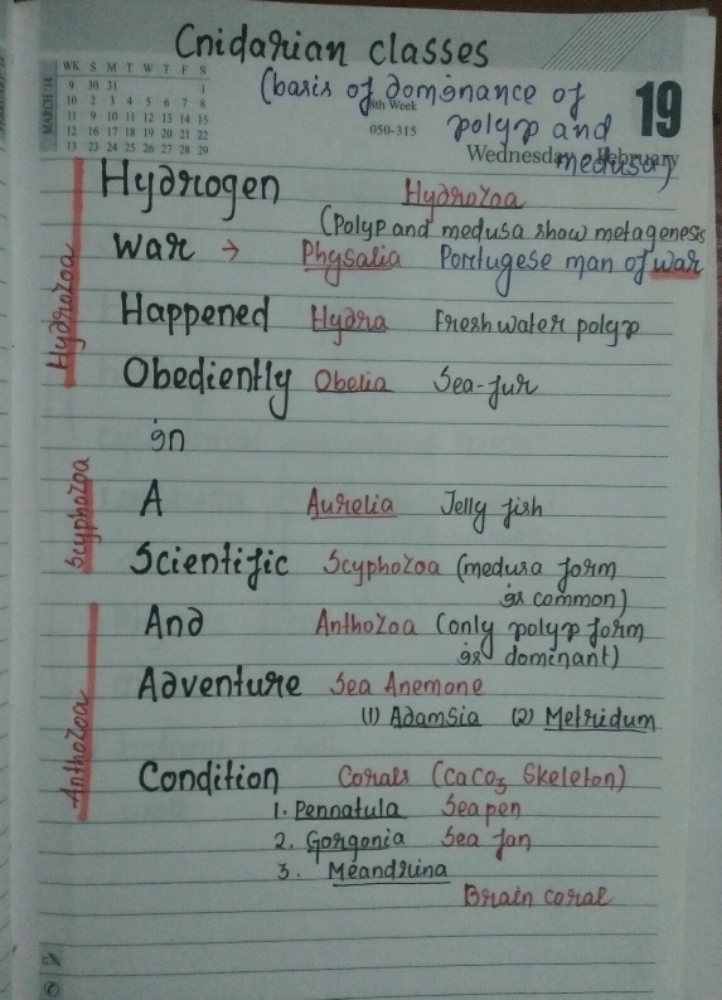 Cnidarian classes
(basis of dominance of
polyp and
medusa)
MARCH '14
WK S M T W T F S
9 30 31 1
10 2 3 4 5 6 7 8
11 9 10 11 12 13 14 15
12 16 17 18 19 20 21 22
13 23 24 25 26 27 28 29
8th Week
050-315
19
Wednesday February
Hydrogen Hydrozoa
(Polyp and medusa show metagenesis
War → Physalia Portugese man of war
Happened Hydra Freshwater polyp
Hydrozoa
Obediently Obelia Sea-fur
in
A Aurelia Jelly fish
Scyphozoa
Scientific Scyphozoa (medusa form
is common)
And Anthozoa (only polyp form
is dominant)
Adventure Sea Anemone
(1) Adamsia (2) Metridum
Anthozoa
Condition Corals (CaCO3 Skeleton)
1. Pennatula Seapen
2. Gorgonia Sea fan
3. Meandrina
Brain coral